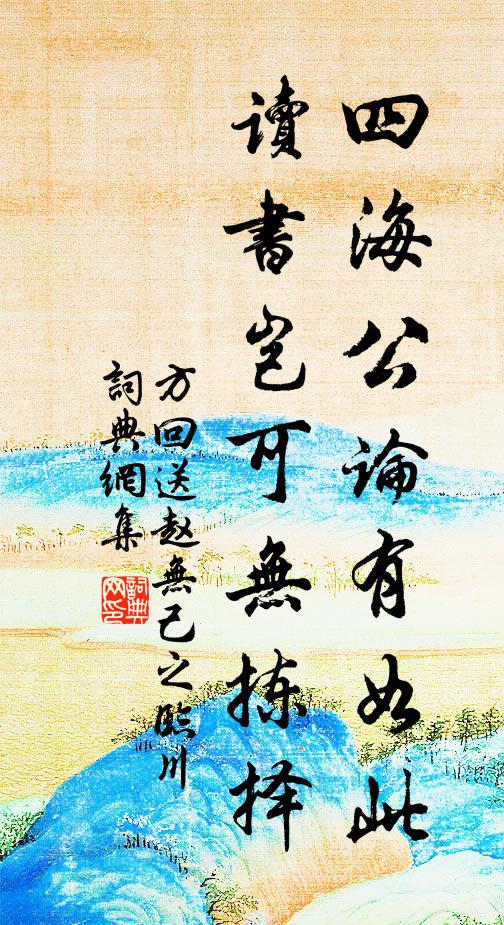 四海公論有如此
讀書岂可無拣择
方回送赵無己之臨川
詞典網集
詞典網印